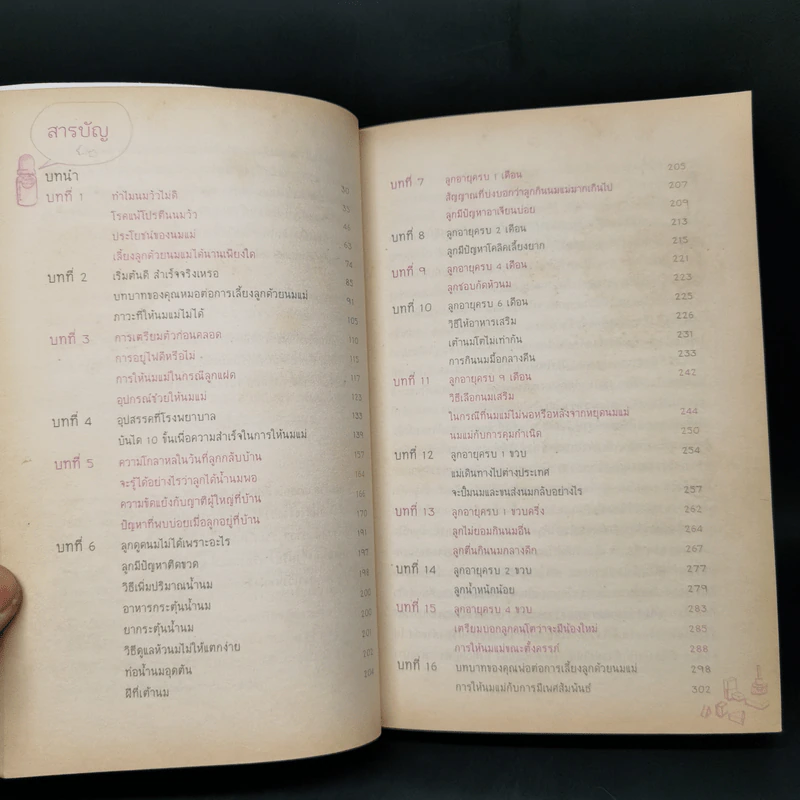 สารบัญ
บทนำ
บทที่ 1 ทำไมนมวัวไม่ดี
โรคแพ้โปรตีนนมวัว 35
ประโยชน์ของนมแม่ 46
เลี้ยงลูกด้วยนมแม่ได้นานเพียงใด 63
บทที่ 2 เริ่มต้นดี สำเร็จจริงเหรอ 74
บทบาทของคุณหมอต่อการเลี้ยงลูกด้วยนมแม่ 85
ภาวะที่ให้นมแม่ไม่ได้ 91
บทที่ 3 การเตรียมตัวก่อนคลอด 105
การอยู่ไฟดีหรือไม่ 110
การให้นมแม่ในกรณีลูกแฝด 115
อุปกรณ์ช่วยให้นมแม่ 117
บทที่ 4 อุปสรรคที่โรงพยาบาล
บันได 10 ขั้นเพื่อความสำเร็จในการให้นมแม่ 139
บทที่ 5 ความโกลาหลในวันที่ลูกกลับบ้าน 157
จะรู้ได้อย่างไรว่าลูกได้น้ำนมพอ 164
ความขัดแย้งกับญาติผู้ใหญ่ที่บ้าน 166
ปัญหาที่พบบ่อยเมื่อลูกอยู่ที่บ้าน 170
บทที่ 6 ลูกดูดนมไม่ได้เพราะอะไร 191
ลูกมีปัญหาติดขวด 197
วิธีเพิ่มปริมาณน้ำนม 198
อาหารกระตุ้นน้ำนม 200
ยากระตุ้นน้ำนม 200
วิธีดูแลหัวนมไม่ให้แตกง่าย 201
ท่อน้ำนมอุดตัน 202
ฝีที่เต้านม 204
บทที่ 7 ลูกอายุครบ 1 เดือน 205
สัญญาณที่บ่งบอกว่าลูกกินนมแม่มากเกินไป 207
ลูกมีปัญหาอาเจียนบ่อย 209
บทที่ 8 ลูกอายุครบ 2 เดือน 213
ลูกมีปัญหาโคลิคเลี้ยงยาก 215
บทที่ 9 ลูกอายุครบ 4 เดือน 221
ลูกชอบกัดหัวนม 223
บทที่ 10 ลูกอายุครบ 6 เดือน 225
วิธีให้อาหารเสริม 226
เต้านมโตไม่เท่ากัน 231
การกินนมมื้อกลางคืน 233
บทที่ 11 ลูกอายุครบ 9 เดือน 242
วิธีเลือกนมเสริม
ในกรณีที่นมแม่ไม่พอหรือหลังจากหยุดนมแม่ 244
นมแม่กับการคุมกำเนิด 250
บทที่ 12 ลูกอายุครบ 1 ขวบ 254
แม่เดินทางไปต่างประเทศ
จะปั๊มนมและขนส่งนมกลับอย่างไร 257
บทที่ 13 ลูกอายุครบ 1 ขวบครึ่ง 262
ลูกไม่ยอมกินนมอื่น 264
ลูกตื่นกินนมกลางดึก 267
บทที่ 14 ลูกอายุครบ 2 ขวบ 277
ลูกน้ำหนักน้อย 279
บทที่ 15 ลูกอายุครบ 4 ขวบ 283
เตรียมบอกลูกคนโตว่าจะมีน้องใหม่ 285
การให้นมแม่ขณะตั้งครรภ์ 288
บทที่ 16 บทบาทของคุณพ่อต่อการเลี้ยงลูกด้วยนมแม่ 298
การให้นมแม่กับการมีเพศสัมพันธ์ 302